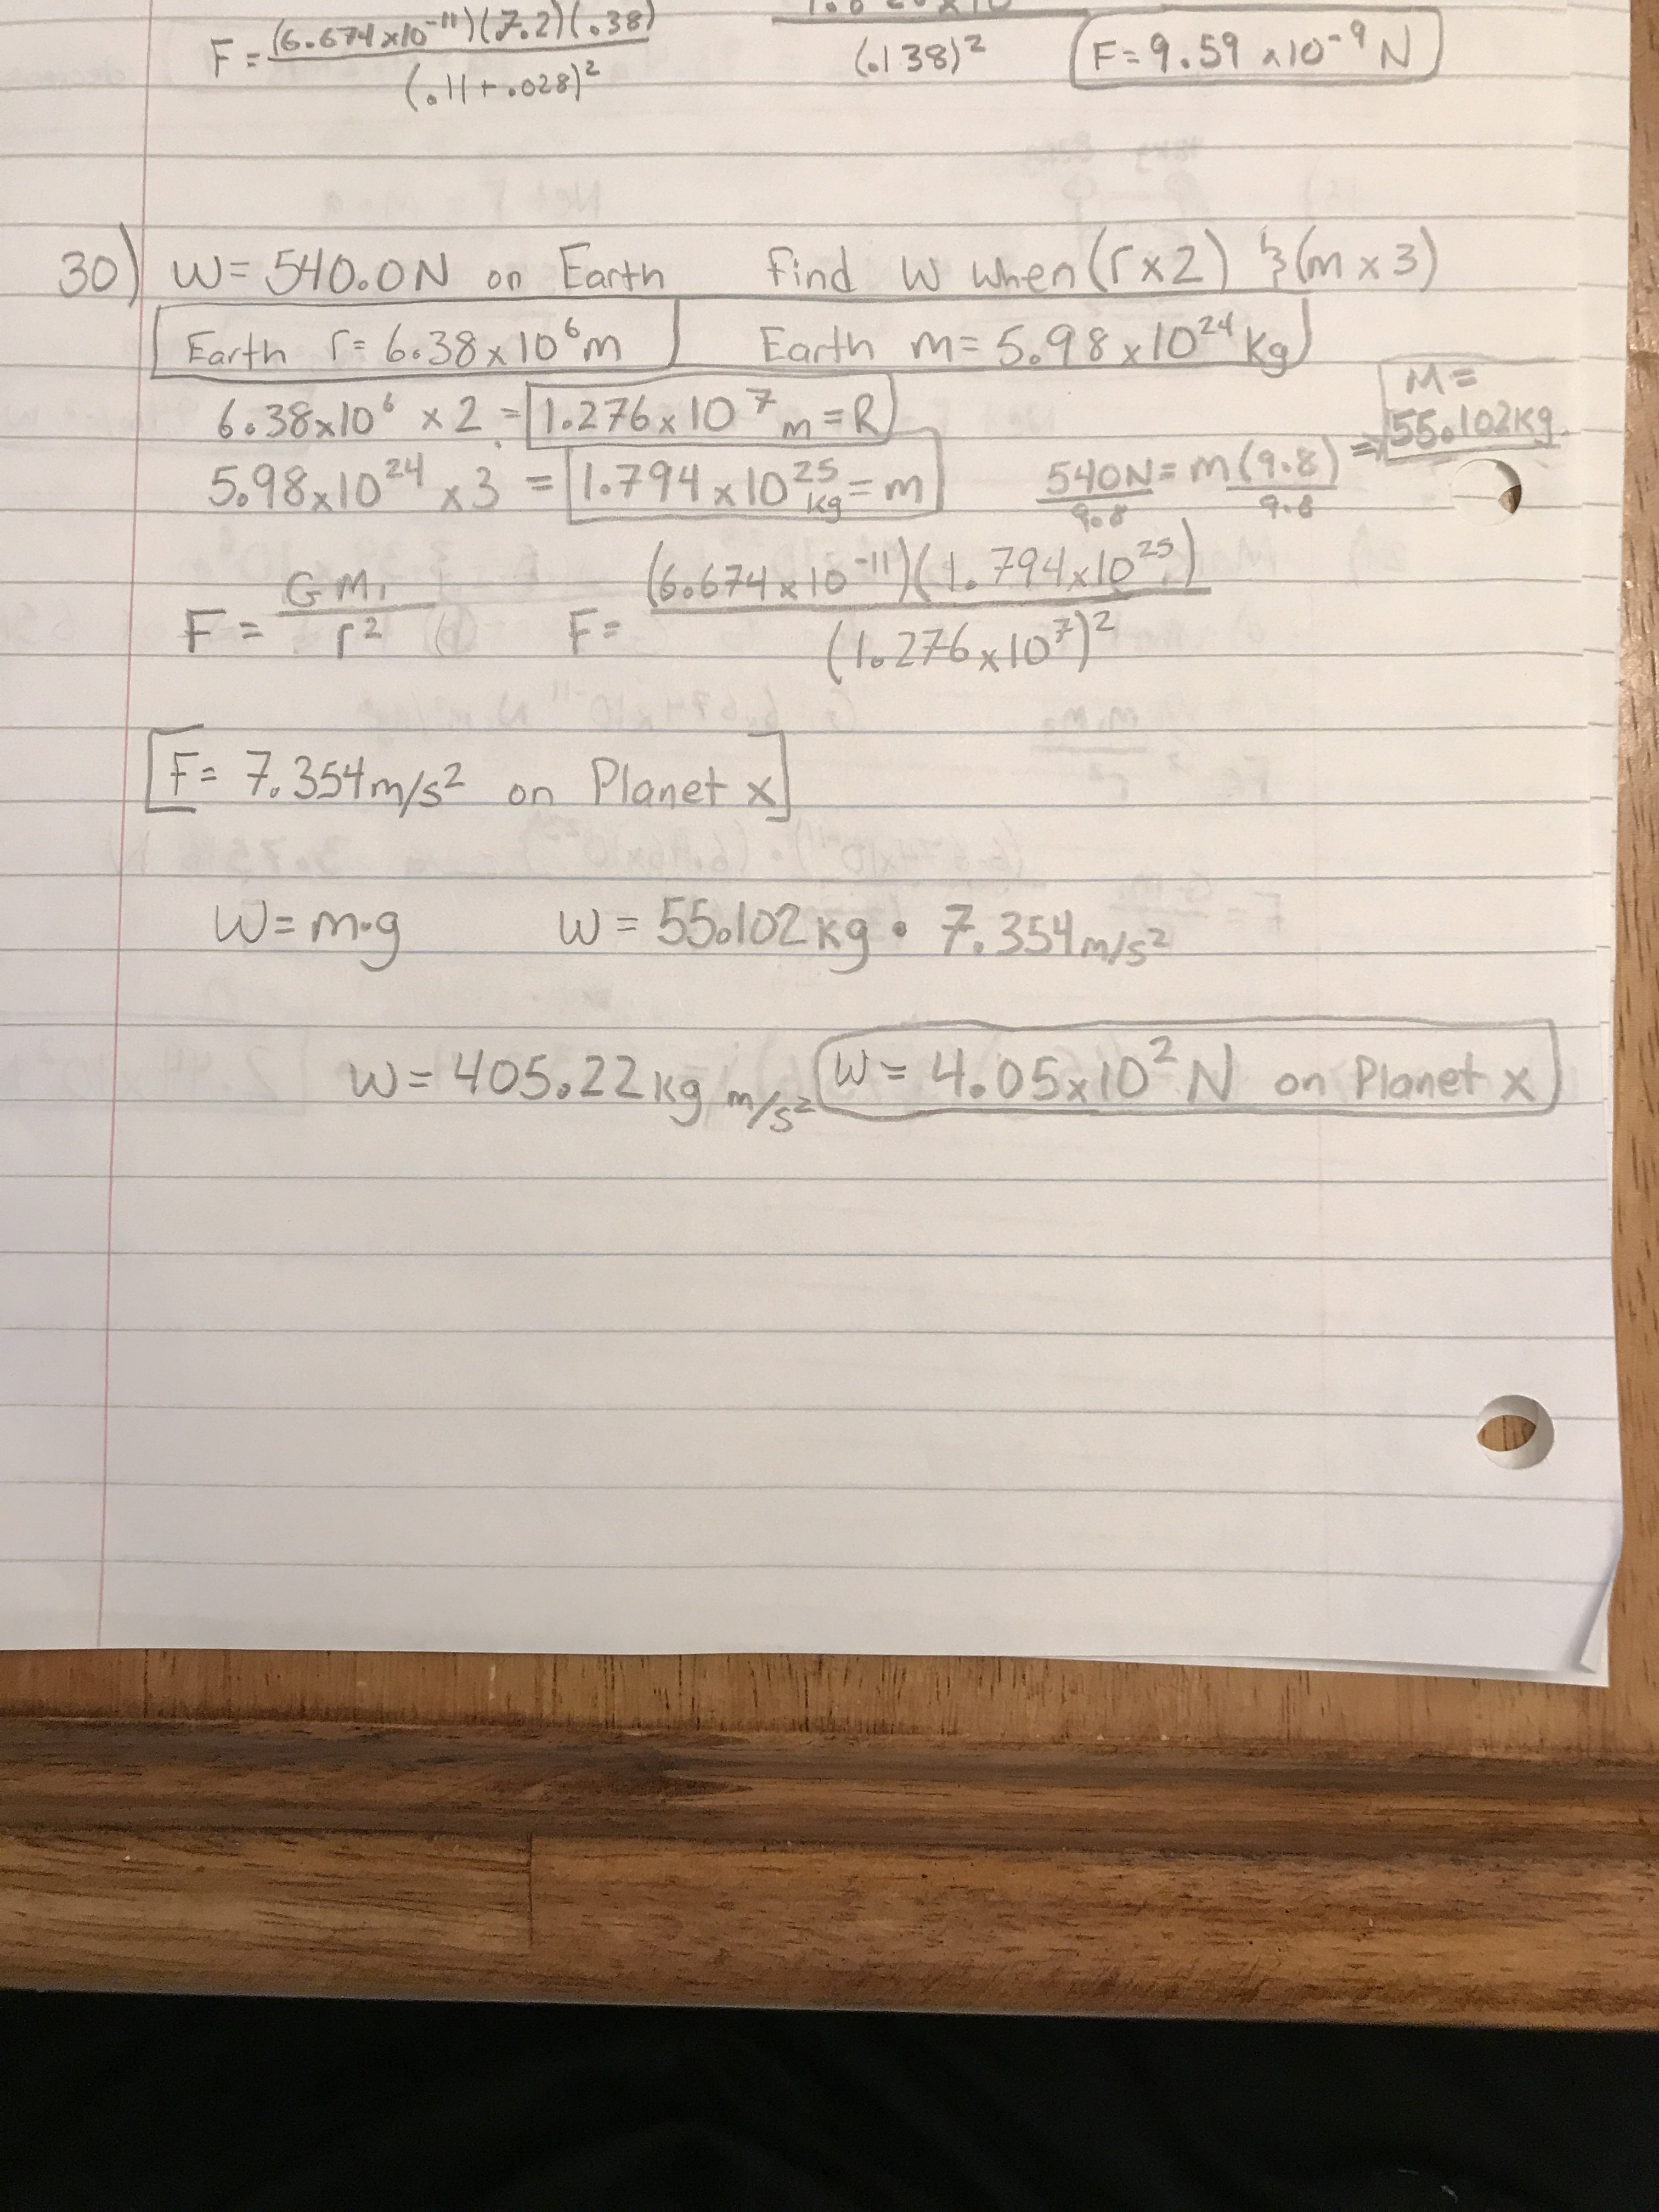 F = (6.674 x 10⁻¹¹)(7.2)(.38) / (.11 + .028)²
(.138)²
F = 9.59 x 10⁻⁹ N
30) W = 540.0N on Earth Find W when (r x 2) & (m x 3)
Earth r = 6.38 x 10⁶ m Earth m = 5.98 x 10²⁴ kg
6.38 x 10⁶ x 2 = 1.276 x 10⁷ m = R
M = 55.102kg
5.98 x 10²⁴ x 3 = 1.794 x 10²⁵ kg = m
540N / 9.8 = m(9.8) / 9.8 =>
F = GM₁ / r² F = (6.674 x 10⁻¹¹)(1.794 x 10²⁵) / (1.276 x 10⁷)²
F = 7.354 m/s² on Planet x
W = m·g W = 55.102 kg • 7.354 m/s²
W = 405.22 kg m/s² W = 4.05 x 10² N on Planet x